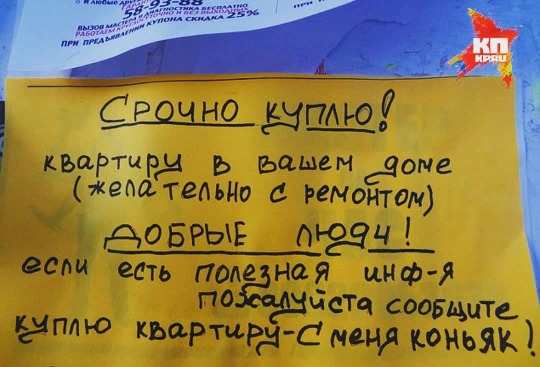 и любые другие
58-93-88
ДИАГНОСТИКА БЕСПЛАТНО
РАБОТАЕМ КРУГЛОСУТОЧНО И БЕЗ ВЫХОДНЫХ
ВЫЗОВ МАСТЕРА
ПРИ ПРЕДЪЯВЛЕНИИ КУПОНА СКИДКА 25%
ПРИ
КП
KP.RU
СРОЧНО КУПЛЮ!
квартиру в вашем доме
(желательно с ремонтом)
ДОБРЫЕ ЛЮДИ!
если есть полезная инф-я
пожалуйста сообщите
куплю квартиру-с меня коньяк!